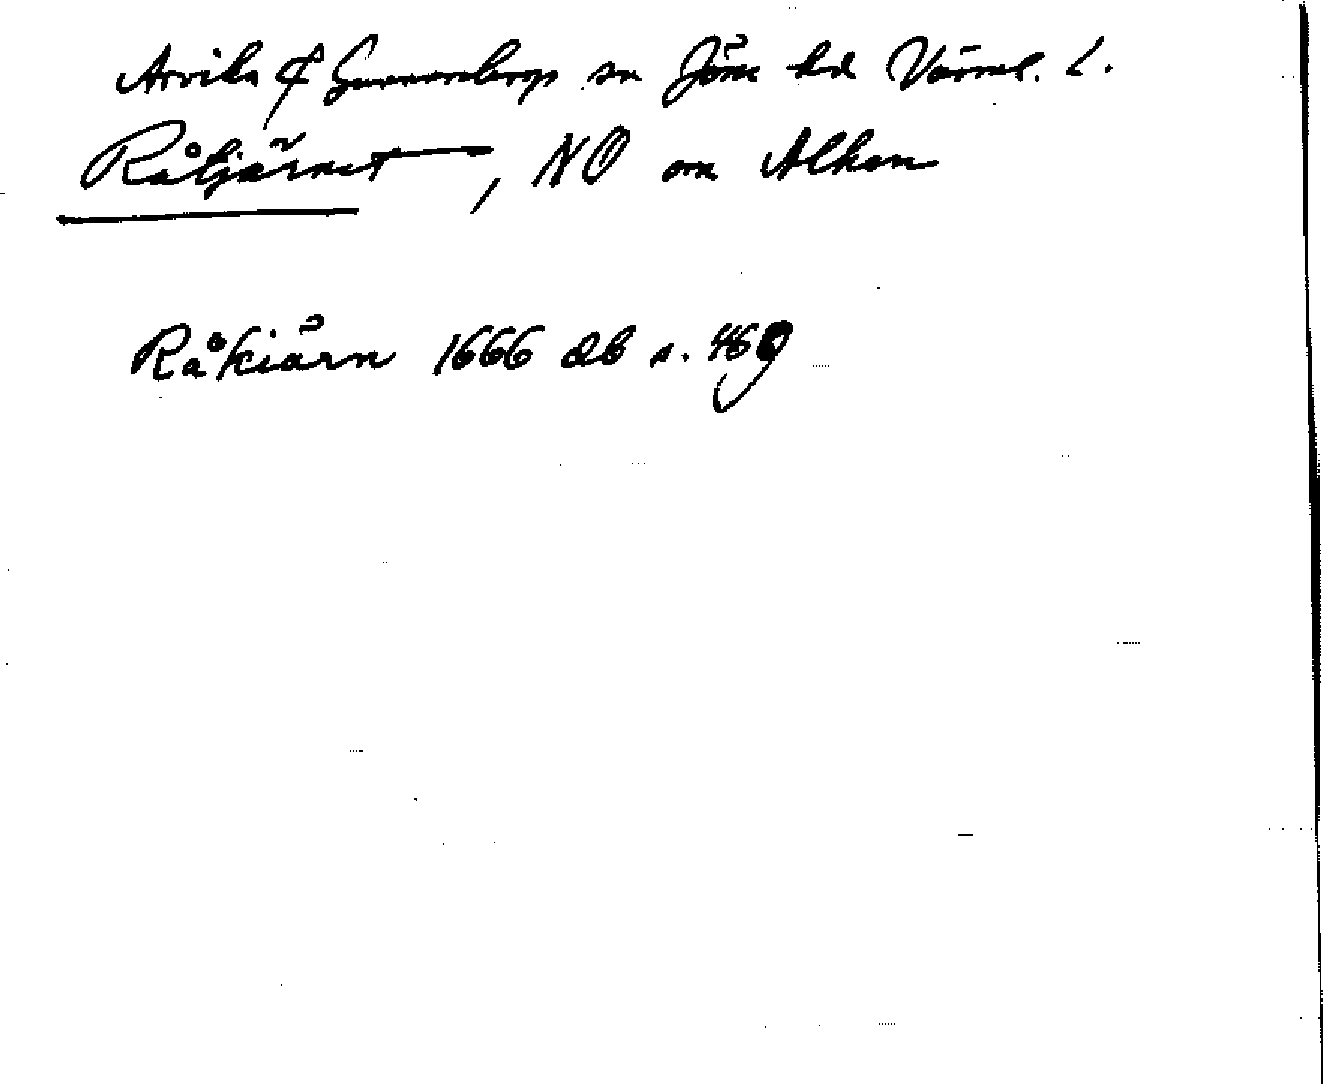 Arvika & Gunnarskogs sn Jösse hd Värml. L.
Råtjärnet, NO om Alken
Råkiärn 1666 db s. 469